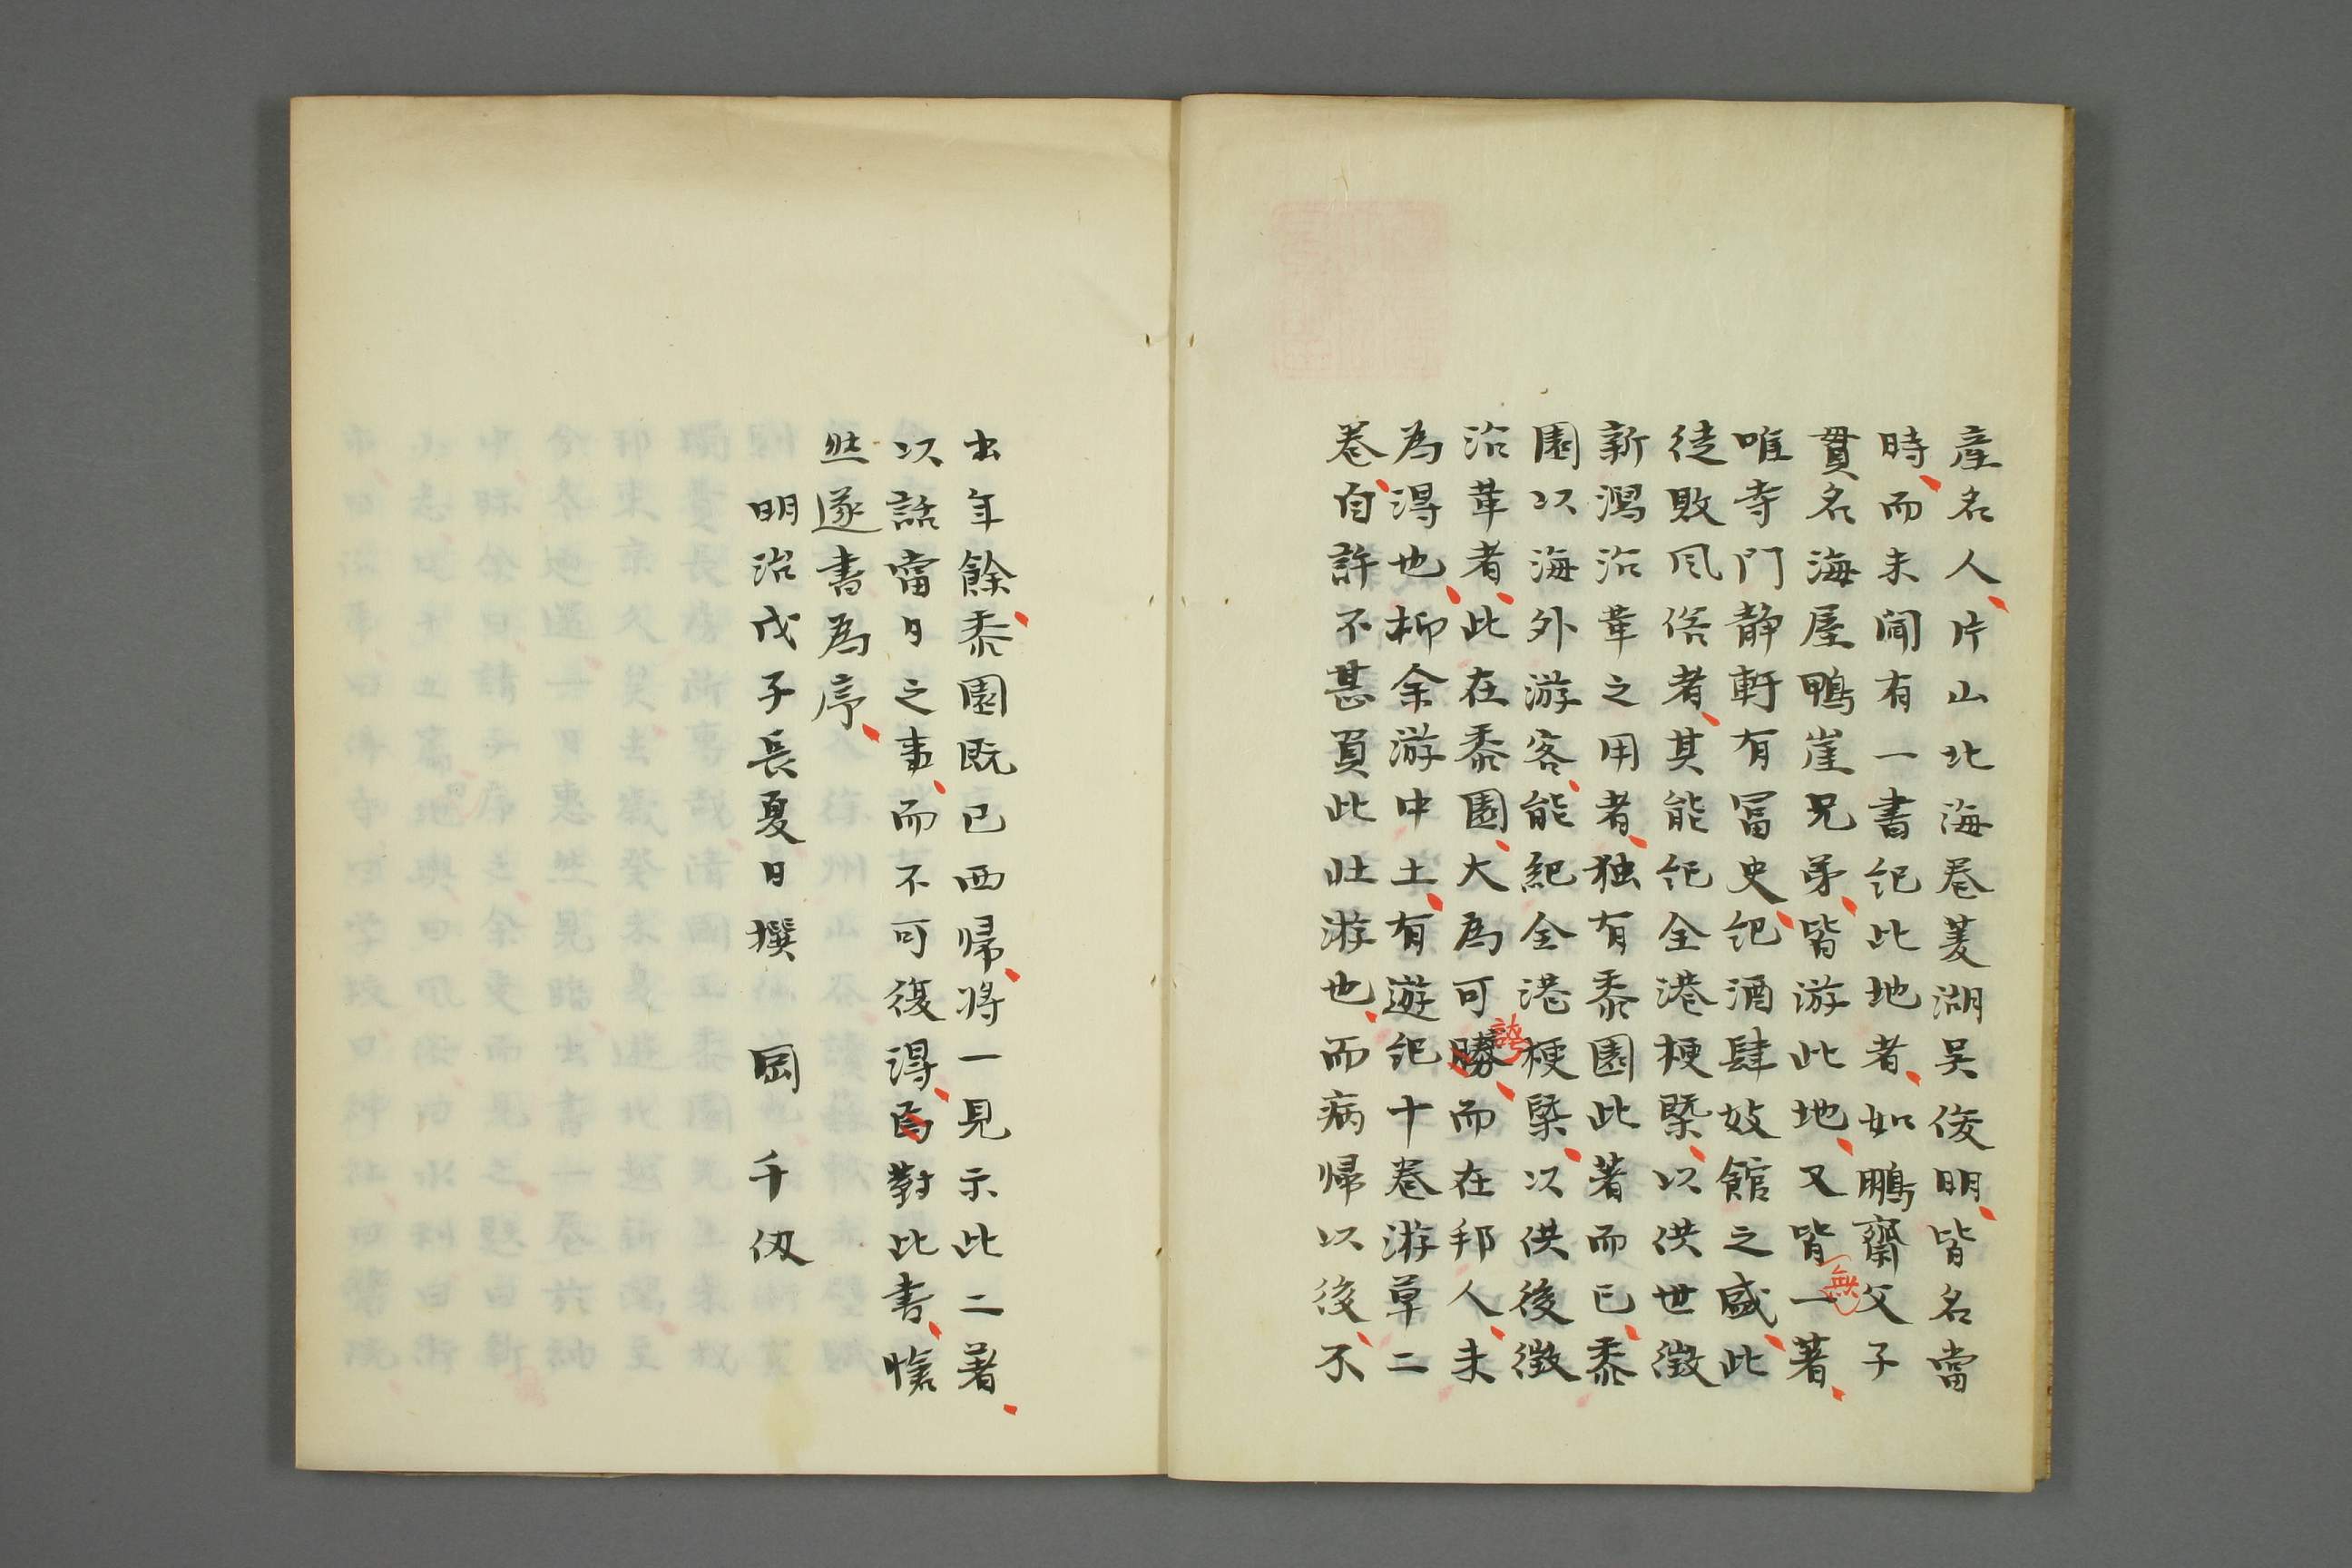 産名人片山北海巻菱湖吴俊明皆名當
時而未聞有一書紀此地者如鵬齋父子
貫名海屋鴨崖兄弟皆游此地又皆一著
無
唯寺門静軒有冨史紀酒肆妓館之盛此
徒敗風俗者其能紀全港梗槩以供世徴
新潟沿革之用者独有黍園此著而已黍
園以海外游客能紀全港梗槩以供後徴
沿革者此在黍園大為可勝而在邦人未
誇
為得也抑余游中土有遊紀十巻游草二
巻自許不甚負此壮游也而病帰以後不
出年餘黍園既已西帰将一見示此二著
以話當日之事而不可復得為對此書愴
然遂書為序
明治戊子長夏日撰 岡 千仭